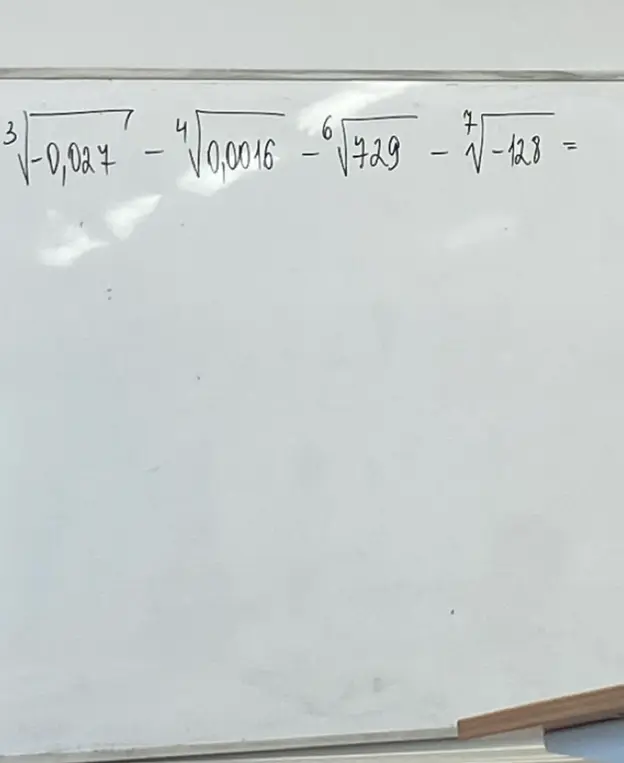 ∛-0,027 - ∜0,0016 - ⁶√729 - ⁷√-128 =